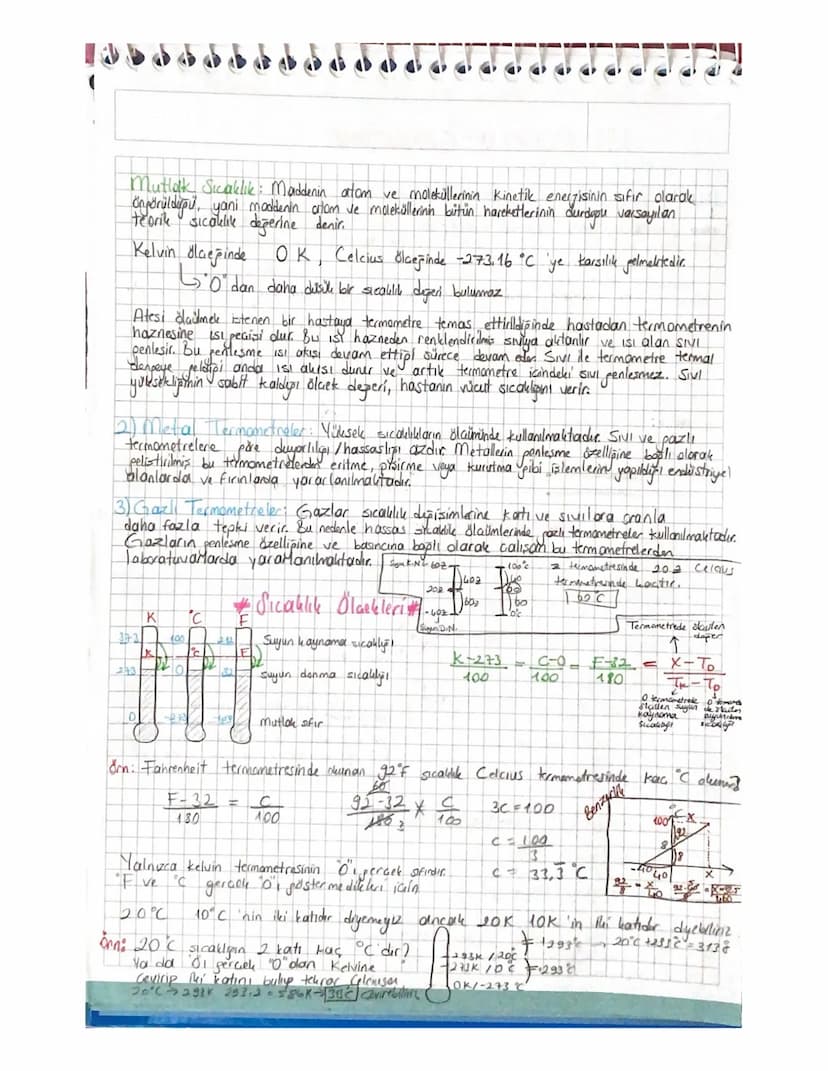 Mutlak Sıcaklık: Maddenin atom ve moleküllerinin kinetik enerjisinin sıfır olarak
öngörüldüğü, yani maddenin atom ve moleküllerinin bütün hareketlerinin durduğu varsayılan
teorik sıcaklık değerine denir.
Kelvin ölçeğinde 0 K, Celcius ölçeğinde -273,16 °C 'ye karşılık gelmektedir.
↳ "0" dan daha düşük bir sıcaklık değeri bulunmaz
Ateşi ölçülmek istenen bir hastaya termometre temas ettirildiğinde hastadan termometrenin
haznesine ısı geçişi olur. Bu ısı hazneden renklendirilmiş sıvıya aktarılır ve ısı alan sıvı
genleşir. Bu genleşme ısı akışı devam ettiği sürece devam eder. Sıvı ile termometre termal
dengeye geldiği anda ısı akışı durur ve artık termometre içindeki sıvı genleşmez. Sıvı
yüksekliğinin sabit kaldığı ölçek değeri, hastanın vücut sıcaklığını verir.
2) Metal Termometreler: Yüksek sıcaklıkların ölçümünde kullanılmaktadır. Sıvı ve gazlı
termometrelere göre duyarlılığı/hassaslığı azdır. Metallerin genleşme özelliğine bağlı olarak
geliştirilmiş bu termometrelerden eritme, pişirme veya kurutma gibi işlemlerin yapıldığı endüstriyel
alanlarda ve fırınlarda yararlanılmaktadır.
3) Gazlı Termometreler: Gazlar sıcaklık değişimlerine katı ve sıvılara oranla
daha fazla tepki verir. Bu nedenle hassas sıcaklık ölçümlerinde gazlı termometreler kullanılmaktadır.
Gazların genleşme özelliğine ve basıncına bağlı olarak çalışan bu termometrelerden
laboratuvarlarda yararlanılmaktadır.
Suyun K.N 60Z 100°C
40Z 40
20Z
60Z 60
-40Z 0°C
Suyun D.N.
Z termometresinde 20 Z Celcius
termometresinde kaçtır.
60°C
* Sıcaklık Ölçekleri *
K °C F
373 100 212 Suyun kaynama sıcaklığı
K °C F
273 0 32 suyun donma sıcaklığı
0 -273 mutlak sıfır
Termometrede ölçülen
değer
K-273/100 = C-0/100 = F-32/180 = X-T₀/Tₖ-T₀
O termometrede
ölçülen suyun
kaynama
sıcaklığı
Örn: Fahrenheit termometresinde okunan 92°F sıcaklık Celcius termometresinde kaç °C okunur?
F-32/180 = C/100
60
92-32/180 3 × C/100
3C=100
C = 100/3
C = 33,3 °C
Benzerlik
100 °C X
92
8
8
-40 40 X
Yalnızca kelvin termometresinin "0"ı gerçek sıfırdır.
°F ve °C gerçek "0"ı göstermedikleri için
20°C 10°C 'nin iki katıdır diyemeyiz ancak 20K 10K 'in iki katıdır diyebiliriz.
Örn: 20°C sıcaklığın 2 katı kaç °C'dir?
Ya da 0'ı gerçek "0"dan Kelvine
çevirip iki katını bulup tekrar Celciusa
20°C → 293K 293.2 = 586K → 313°C çevirebiliriz
293K / 20°C
273K / 0°C
0K / -273°C
+293°C
+293°C → 20°C + 293°C = 313°C